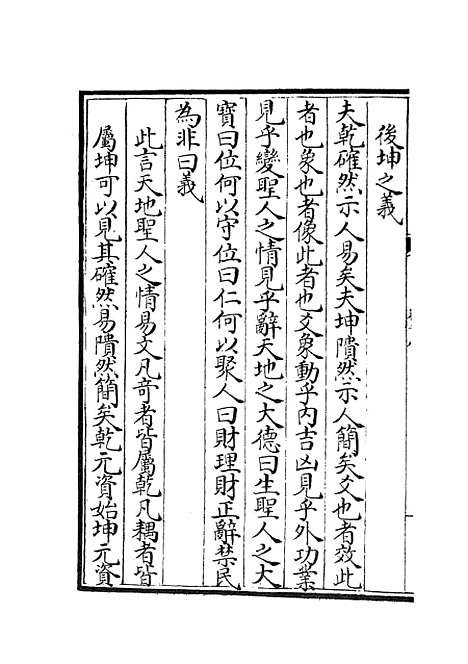 後坤之義
夫乾確然示人易矣夫坤隤然示人簡矣爻也者效此
者也象也者像此者也爻象動乎內吉凶見乎外功業
見乎變聖人之情見乎辭天地之大德曰生聖人之大
寶曰位何以守位曰仁何以聚人曰財理財正辭禁民
為非曰義
此言天地聖人之情易文凡奇者皆屬乾凡耦者皆
屬坤可以見其確然易隤然簡矣乾元資始坤元資